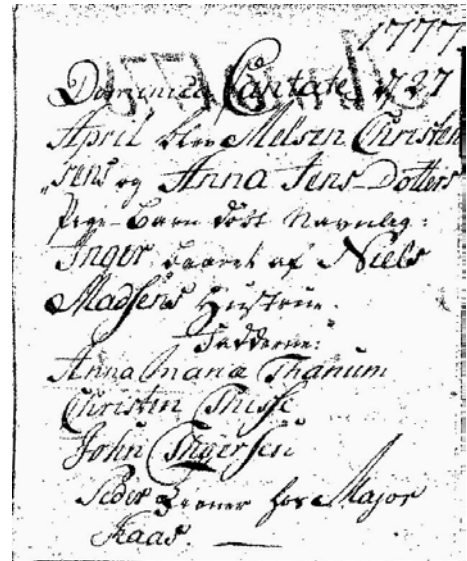 1777
Dominica Cantate d 27
April blev Melsen Christen
„sens og Anna Jens-Dotters
Pige-Barn døbt Navnlig:
Inger baaret af Niels
Madsens Hustrue.
Fadderne:
Anna Maria Thanum
Christen Thisse
John Ingersen
Peder Tiener hos Major
Kaas.